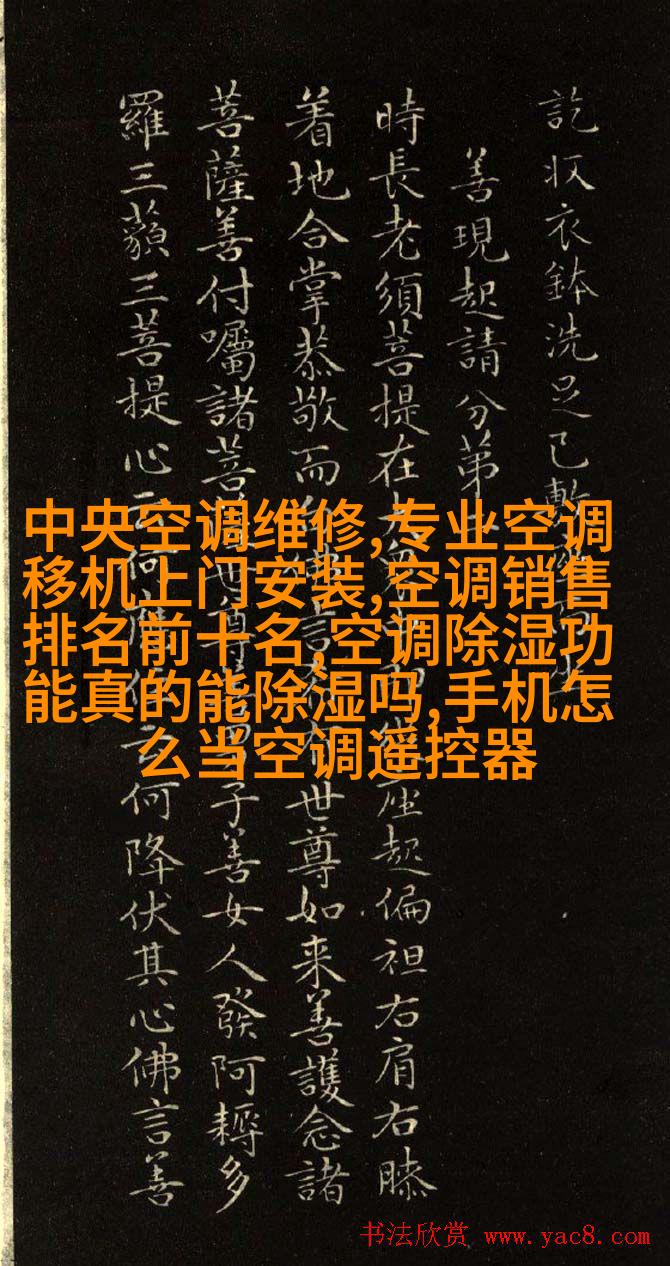 訖収衣鉢洗足已
善現起請分第
時長老須菩提在大座起偏袒右肩右膝
着地合掌恭敬而言有世尊如来善護念諸
菩薩善付囑諸菩世尊子善女人發阿耨多
羅三藐三菩提心云何應住云何降伏其心佛言善
中央空调维修,专业空调
移机上门安装,空调销售
排名前十名,空调除湿功
能真的能除湿吗,手机怎
么当空调遥控器
书法欣赏 www.yac8.com